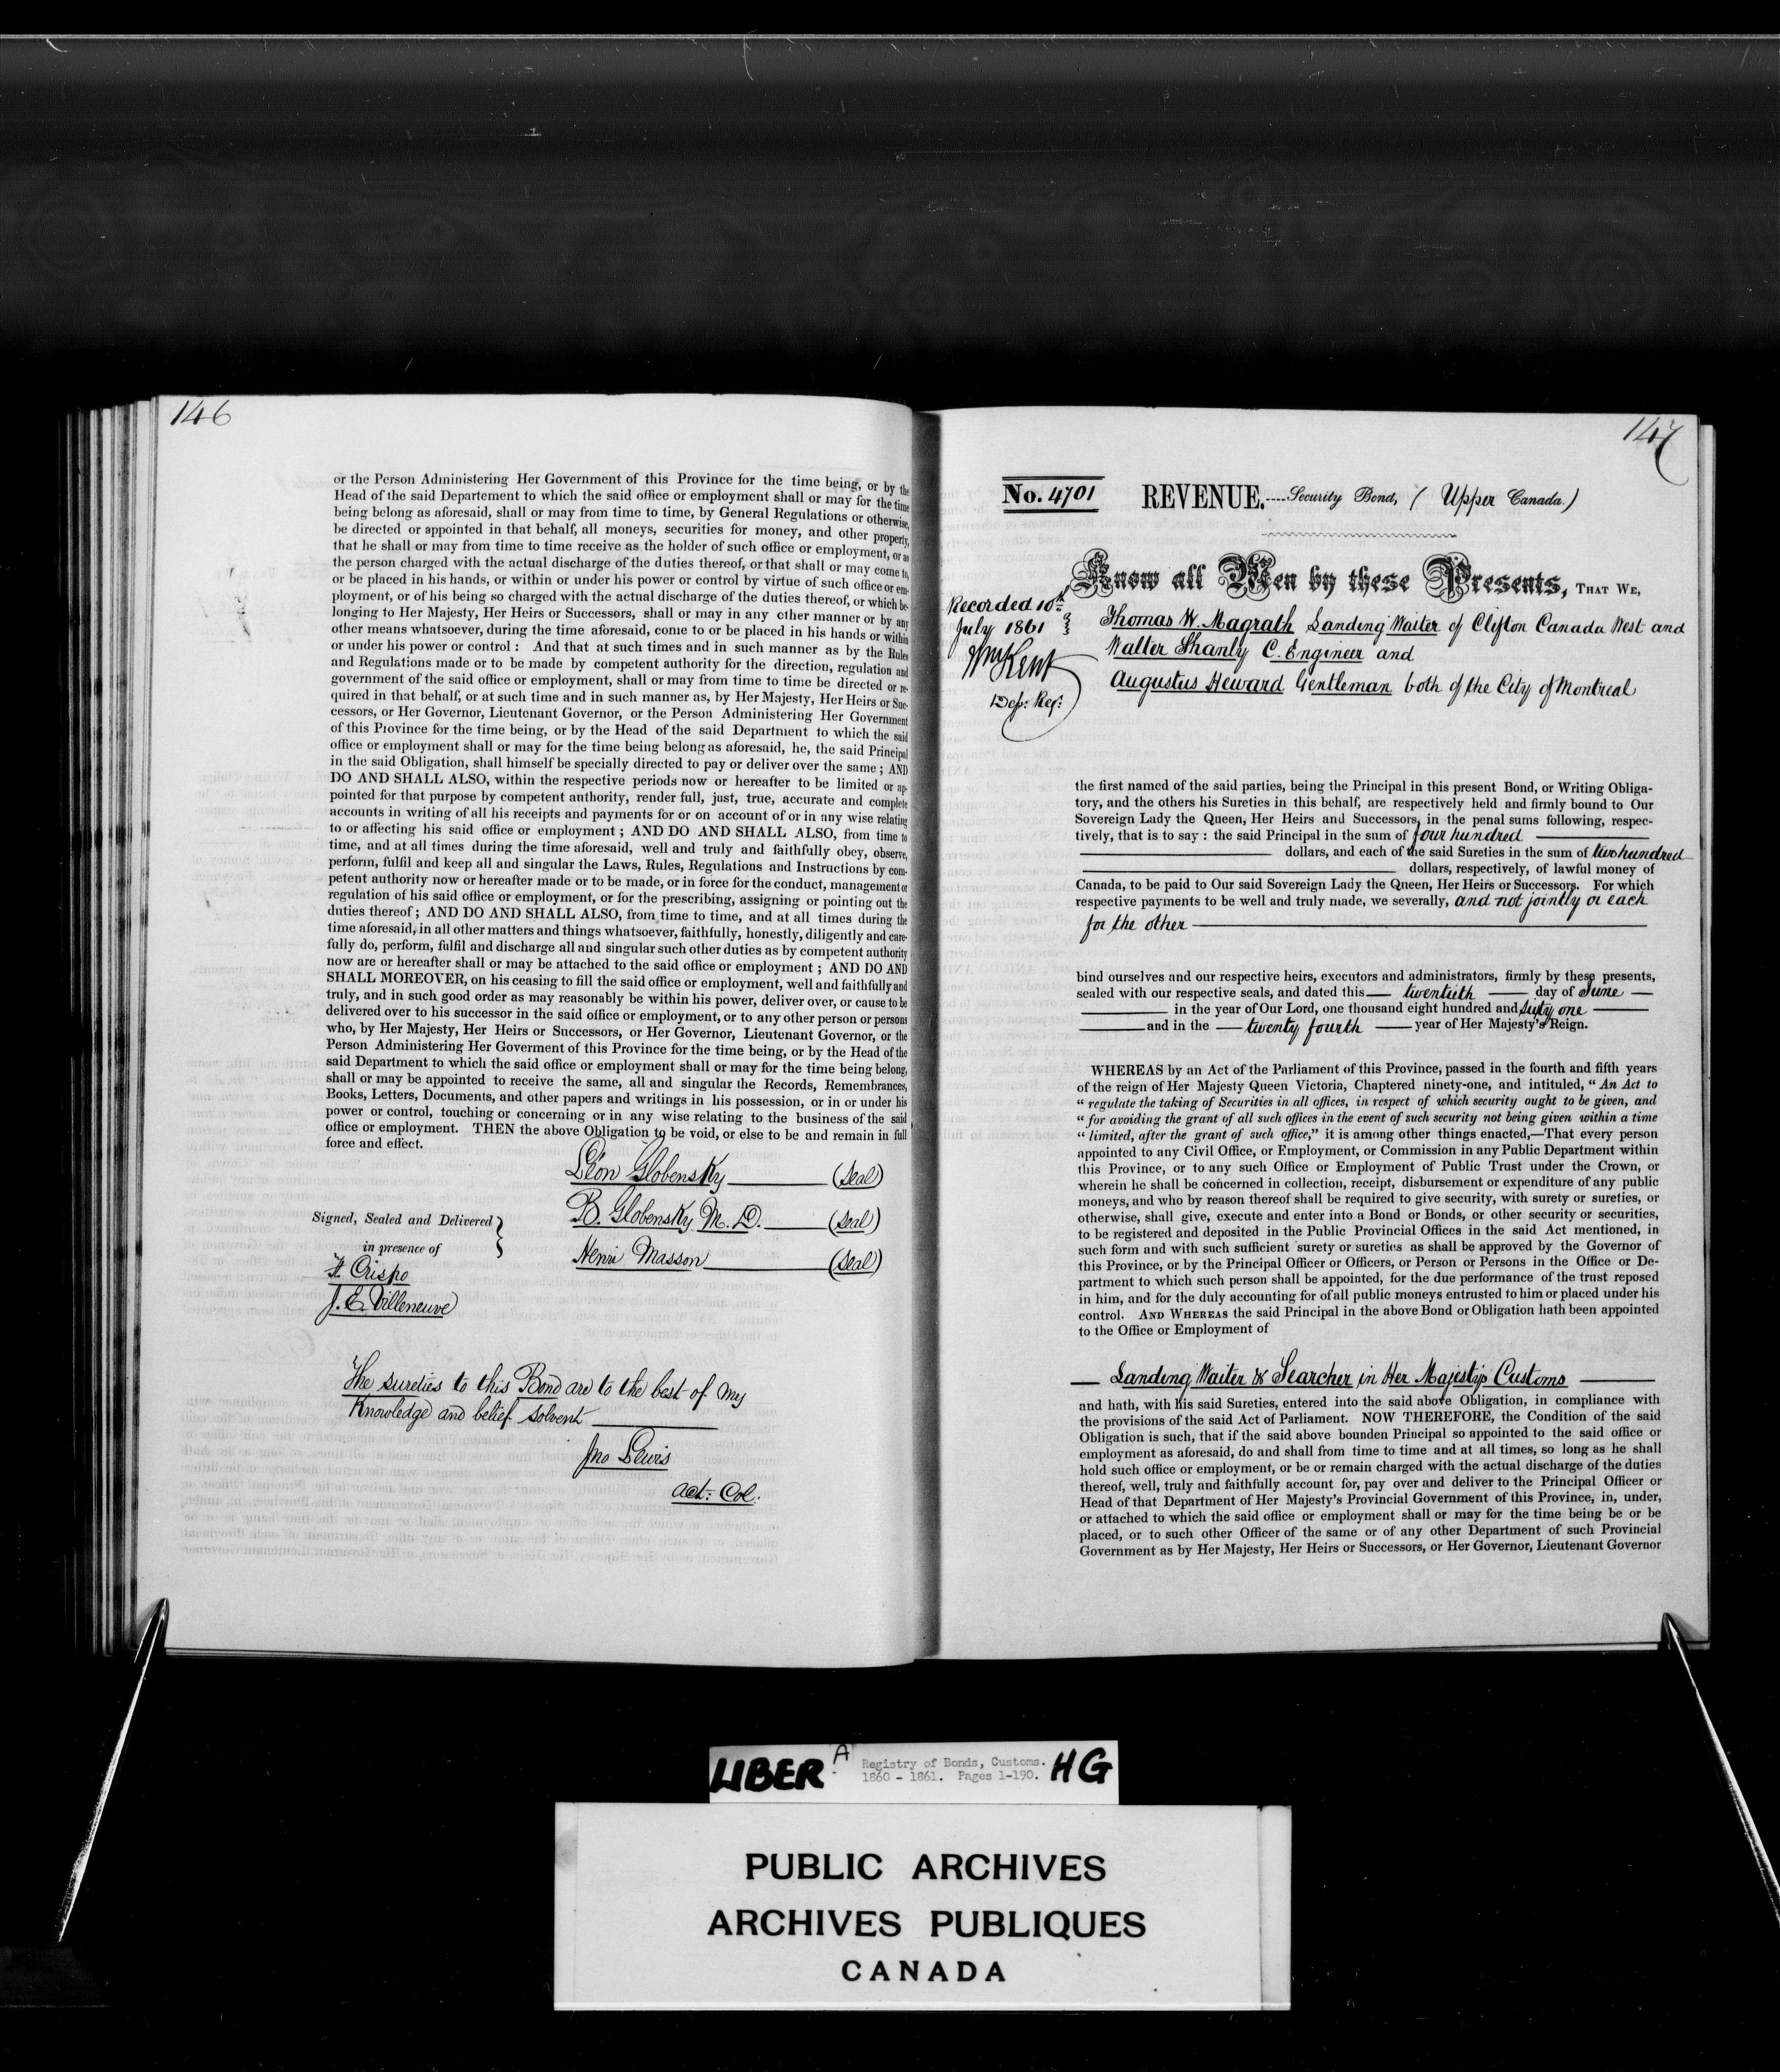 146
or the Person Administering Her Government of this Province for the time being, or by the
Head of the said Departement to which the said office or employment shall or may for the time
being belong as aforesaid, shall or may from time to time, by General Regulations or otherwise,
be directed or appointed in that behalf, all moneys, securities for money, and other property,
that he shall or may from time to time receive as the holder of such office or employment, or as
the person charged with the actual discharge of the duties thereof, or that shall or may come to,
or be placed in his hands, or within or under his power or control by virtue of such office or em-
ployment, or of his being so charged with the actual discharge of the duties thereof, or which be-
longing to Her Majesty, Her Heirs or Successors, shall or may in any other manner or by any
other means whatsoever, during the time aforesaid, come to or be placed in his hands or within
or under his power or control : And that at such times and in such manner as by the Rules
and Regulations made or to be made by competent authority for the direction, regulation and
government of the said office or employment, shall or may from time to time be directed or re-
quired in that behalf, or at such time and in such manner as, by Her Majesty, Her Heirs or Suc-
cessors, or Her Governor, Lieutenant Governor, or the Person Administering Her Government
of this Province for the time being, or by the Head of the said Department to which the said
office or employment shall or may for the time being belong as aforesaid, he, the said Principal
in the said Obligation, shall himself be specially directed to pay or deliver over the same ; AND
DO AND SHALL ALSO, within the respective periods now or hereafter to be limited or ap-
pointed for that purpose by competent authority, render full, just, true, accurate and complete
accounts in writing of all his receipts and payments for or on account of or in any wise relating
to or affecting his said office or employment ; AND DO AND SHALL ALSO, from time to
time, and at all times during the time aforesaid, well and truly and faithfully obey, observe,
perform, fulfil and keep all and singular the Laws, Rules, Regulations and Instructions by com-
petent authority now or hereafter made or to be made, or in force for the conduct, management or
regulation of his said office or employment, or for the prescribing, assigning or pointing out the
duties thereof ; AND DO AND SHALL ALSO, from time to time, and at all times during the
time aforesaid, in all other matters and things whatsoever, faithfully, honestly, diligently and care-
fully do, perform, fulfil and discharge all and singular such other duties as by competent authority
now are or hereafter shall or may be attached to the said office or employment ; AND DO AND
SHALL MOREOVER, on his ceasing to fill the said office or employment, well and faithfully and
truly, and in such good order as may reasonably be within his power, deliver over, or cause to be
delivered over to his successor in the said office or employment, or to any other person or persons
who, by Her Majesty, Her Heirs or Successors, or Her Governor, Lieutenant Governor, or the
Person Administering Her Goverment of this Province for the time being, or by the Head of the
said Department to which the said office or employment shall or may for the time being belong,
shall or may be appointed to receive the same, all and singular the Records, Remembrances,
Books, Letters, Documents, and other papers and writings in his possession, or in or under his
power or control, touching or concerning or in any wise relating to the business of the said
office or employment. THEN the above Obligation to be void, or else to be and remain in full
force and effect.
Léon Globensky (Seal)
Signed, Sealed and Delivered B. Globensky M. D. (Seal)
in presence of Henri Masson (Seal)
F. Crispo
J. E. Villeneuve
The sureties to this Bond are to the best of my
Knowledge and belief solvent
Jno Lewis
Act: Col.
147
No. 4701 REVENUE. ----Security Bond, ( Upper Canada.)
Know all Men by these Presents, THAT WE,
Recorded 10th
July 1861
Wm Kent
Dep: Reg:
Thomas W. Magrath Landing Waiter of Clifton Canada West and
Walter Shanly C. Engineer and
Augustus Heward Gentleman both of the City of Montreal
the first named of the said parties, being the Principal in this present Bond, or Writing Obliga-
tory, and the others his Sureties in this behalf, are respectively held and firmly bound to Our
Sovereign Lady the Queen, Her Heirs and Successors, in the penal sums following, respec-
tively, that is to say : the said Principal in the sum of four hundred
dollars, and each of the said Sureties in the sum of two hundred
dollars, respectively, of lawful money of
Canada, to be paid to Our said Sovereign Lady the Queen, Her Heirs or Successors. For which
respective payments to be well and truly made, we severally, and not jointly or each
for the other
bind ourselves and our respective heirs, executors and administrators, firmly by these presents,
sealed with our respective seals, and dated this twentieth day of June
in the year of Our Lord, one thousand eight hundred and sixty one
and in the twenty fourth year of Her Majesty's Reign.
WHEREAS by an Act of the Parliament of this Province, passed in the fourth and fifth years
of the reign of Her Majesty Queen Victoria, Chaptered ninety-one, and intituled, “ An Act to
“ regulate the taking of Securities in all offices, in respect of which security ought to be given, and
“ for avoiding the grant of all such offices in the event of such security not being given within a time
“ limited, after the grant of such office,” it is among other things enacted,—That every person
appointed to any Civil Office, or Employment, or Commission in any Public Department within
this Province, or to any such Office or Employment of Public Trust under the Crown, or
wherein he shall be concerned in collection, receipt, disbursement or expenditure of any public
moneys, and who by reason thereof shall be required to give security, with surety or sureties, or
otherwise, shall give, execute and enter into a Bond or Bonds, or other security or securities,
to be registered and deposited in the Public Provincial Offices in the said Act mentioned, in
such form and with such sufficient surety or sureties as shall be approved by the Governor of
this Province, or by the Principal Officer or Officers, or Person or Persons in the Office or De-
partment to which such person shall be appointed, for the due performance of the trust reposed
in him, and for the duly accounting for of all public moneys entrusted to him or placed under his
control. AND WHEREAS the said Principal in the above Bond or Obligation hath been appointed
to the Office or Employment of
Landing Waiter & Searcher in Her Majestys Customs
and hath, with his said Sureties, entered into the said above Obligation, in compliance with
the provisions of the said Act of Parliament. NOW THEREFORE, the Condition of the said
Obligation is such, that if the said above bounden Principal so appointed to the said office or
employment as aforesaid, do and shall from time to time and at all times, so long as he shall
hold such office or employment, or be or remain charged with the actual discharge of the duties
thereof, well, truly and faithfully account for, pay over and deliver to the Principal Officer or
Head of that Department of Her Majesty's Provincial Government of this Province, in, under,
or attached to which the said office or employment shall or may for the time being be or be
placed, or to such other Officer of the same or of any other Department of such Provincial
Government as by Her Majesty, Her Heirs or Successors, or Her Governor, Lieutenant Governor
LIBER A Registry of Bonds, Customs. HG
1860 - 1861. Pages 1-190.
PUBLIC ARCHIVES
ARCHIVES PUBLIQUES
CANADA